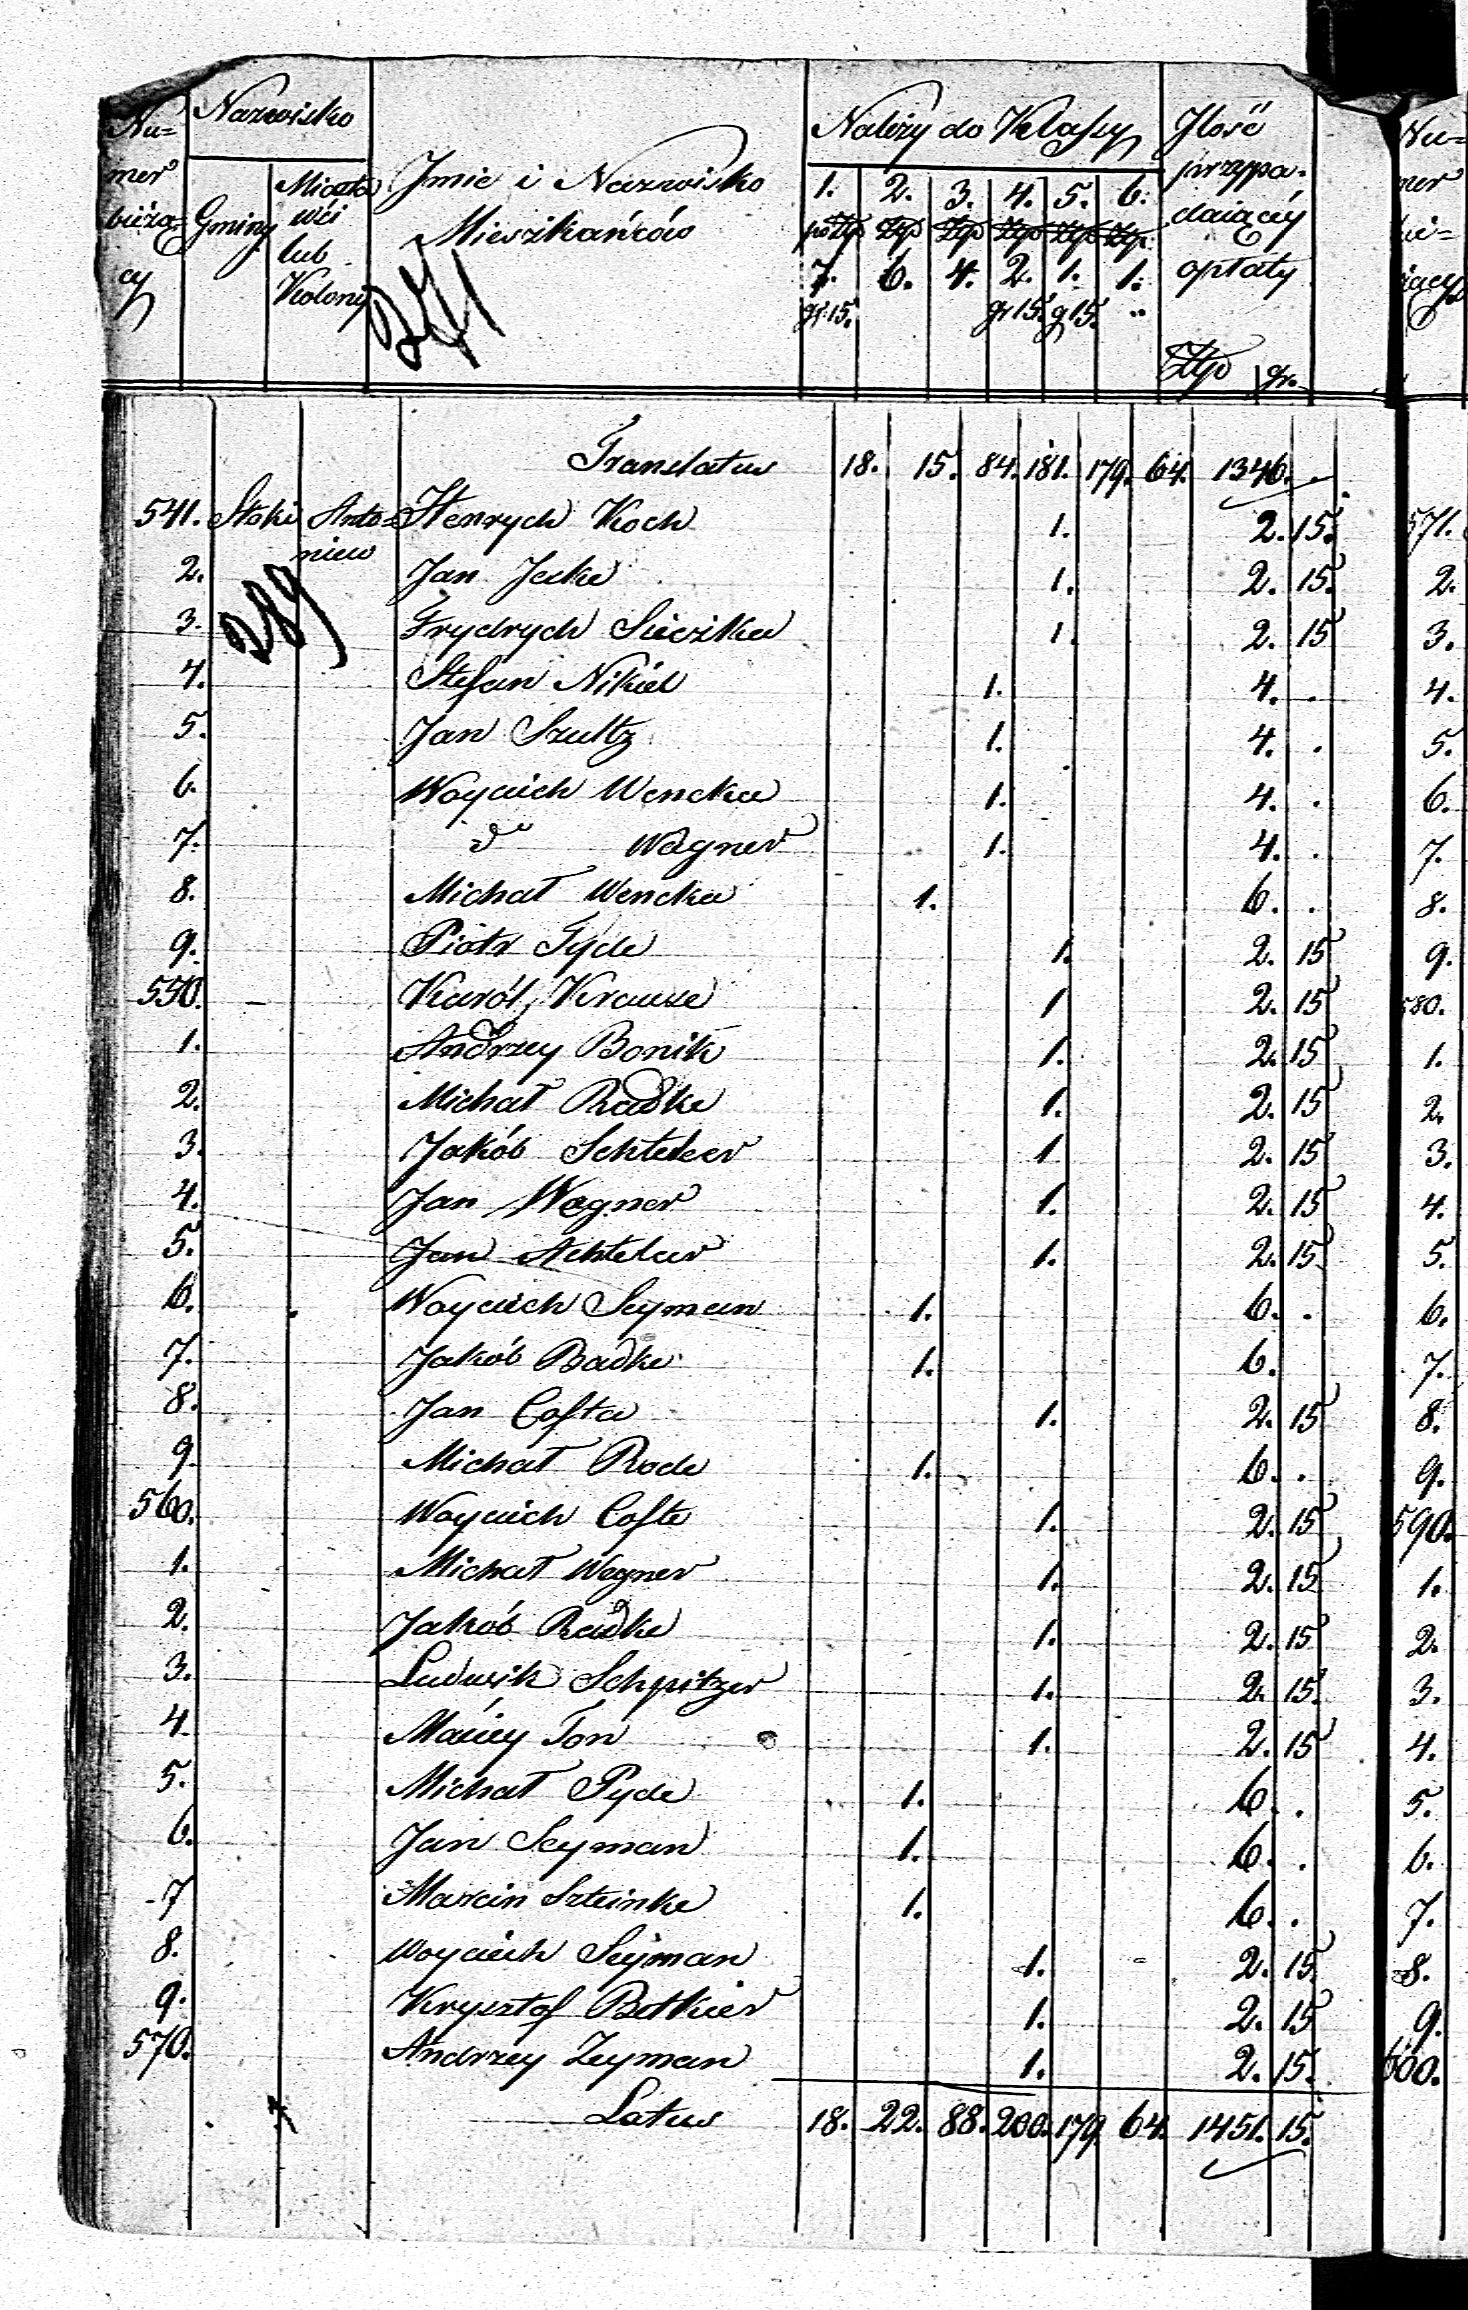 Nu=
mer
bieżą=
cy
Nazwisko
Gminy
Miasta
wsi
lub
Kolony
Jmie i Nazwisko
Mieszkańców
271
Należy do Klassy
1. 2. 3. 4. 5. 6.
po Złp Złp Złp Złp Złp Złp
7. 6. 4. 2. 1. 1.
gr 15. gr 15. g 15. "
Jlość
przypa-
daiącéy
opłaty
Złp gr.
Translatus 18. 15. 84. 181. 179. 64. 1346. .
541. Stoki Anto= Henrych Koch 1. 2. 15.
niew
2. Jan Jecke 1. 2. 15.
289
3. Frydrych 1. 2. 15
4. Stefan Nikiel 1. 4. .
5. Jan Szultz 1. 4. .
6. Woyciech Wencke 1. 4. .
7. d° Wagner 1. 4. .
8. Michał Wencke 1. 6. .
9. Piotr Tyde 1. 2. 15
550. Karól Krause 1 2. 15
1. Andrzey Bonik 1. 2. 15
2. Michał Radke 1. 2. 15
3. Jakób 1 2. 15
4. Jan Wagner 1. 2. 15
5. Jan 1. 2. 15
6. Woyciech Seyman 1. 6. .
7. Jakób Radke 1. 6.
8. Jan Coste 1. 2. 15
9 Michał Rode 1. 6. .
560. Woyciech Coste 1. 2. 15
1. Michał Wagner 1. 2. 15
2. Jakób Radke 1. 2. 15
3. Ludwik Schpitzer 1. 2. 15.
4. Maciey Ton 1. 2. 15
5. Michał Tyde 1. 6. .
6. Jan Seyman 1. 6. .
7 Marcin Szteinke 1. 6. .
8. Woyciech Seyman 1. 2. 15
9. Krysztof Betkier 1. 2. 15
570. Andrzey Zeyman 1. 2. 15.
Latus 18. 22. 88. 200. 179 64. 1451. 15.
Nu=
mer
bie=
żący
571.
2.
3.
4.
5.
6.
7.
8.
9.
580.
1.
2.
3.
4.
5.
6.
7.
8.
9.
590.
1.
2.
3.
4.
5.
6.
7.
8.
9.
600.